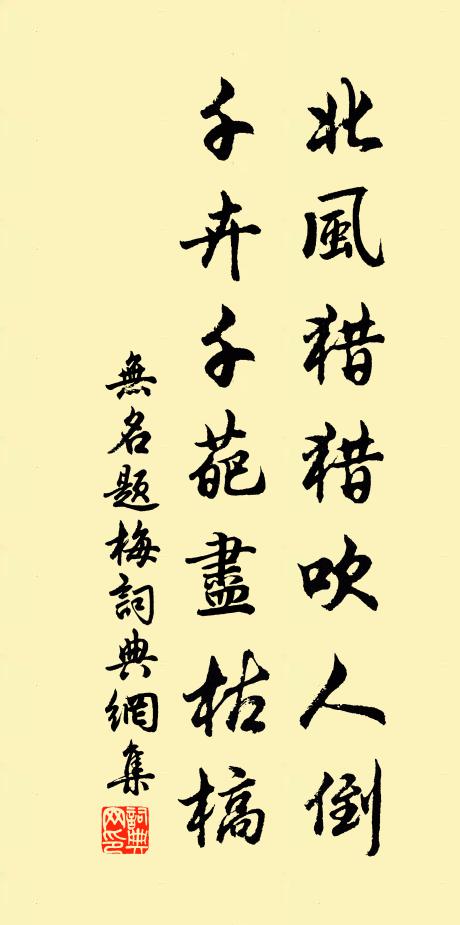 北風猎猎吹人倒
千卉千葩盡枯槁
無名題梅詞典網集
詞典网印